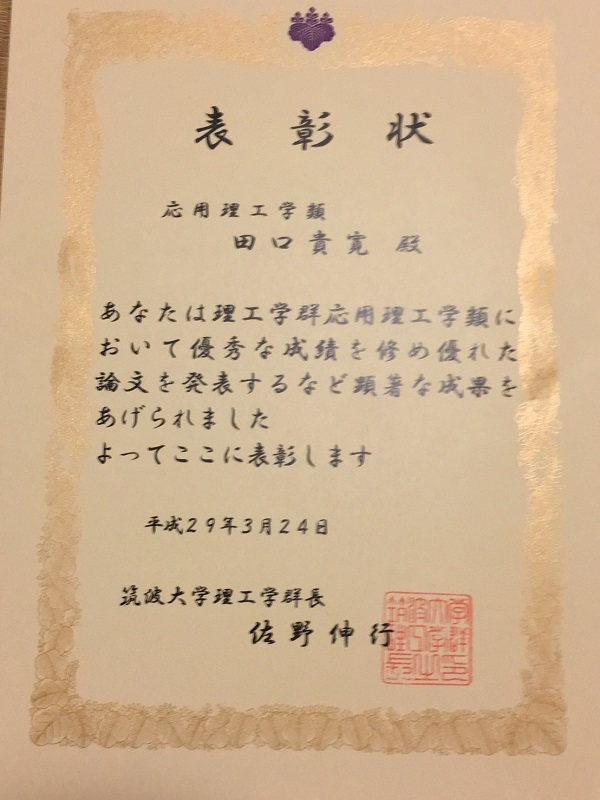 表彰状
応用理工学類
田口貴寛 殿
あなたは理工学群応用理工学類に
おいて優秀な成績を修め優れた
論文を発表するなど顕著な成果を
あげられました
よってここに表彰します
平成29年3月24日
筑波大学理工学群長
佐野伸行